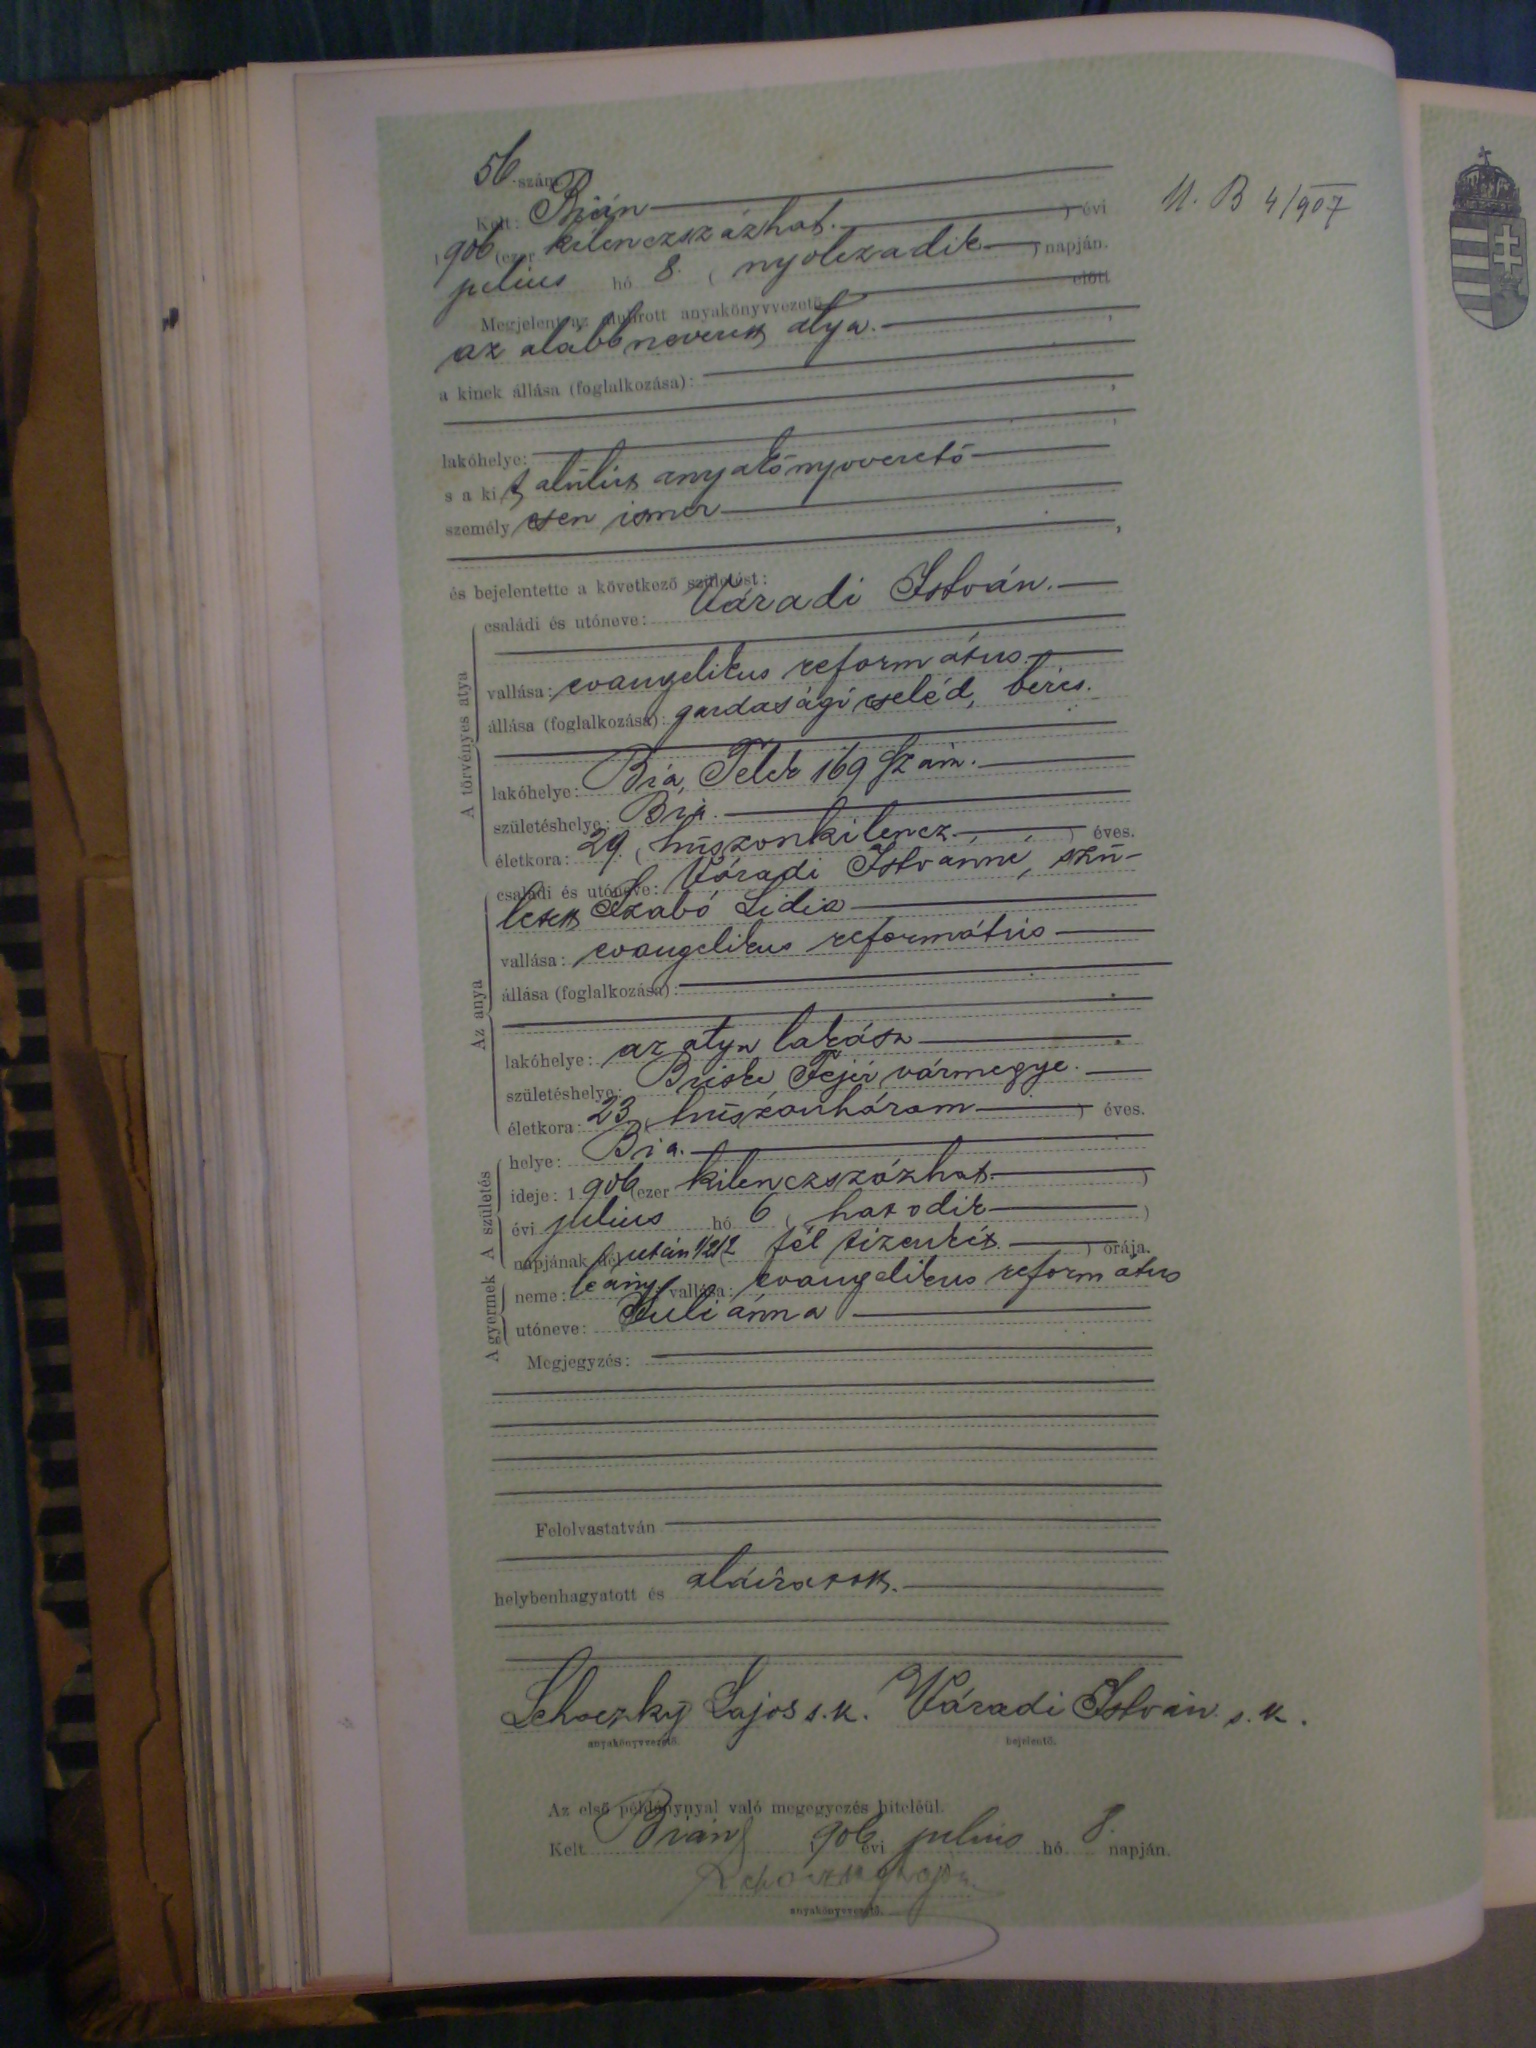 56 szám
U. B 4/907
Kelt: Bián
1906 (ezer kilenczszázhat. ) évi
julius hó 8. ( nyolczadik ) napján.
Megjelent az alulirott anyakönyvvezető előtt
az alább nevezett atya.
a kinek állása (foglalkozása):
lakóhelye:
s a kit alulirt anyakönyvvezető
személyesen ismer
és bejelentette a következő születést:
A törvényes atya
családi és utóneve: Váradi István.
vallása: evangelikus református.
állása (foglalkozása): gazdasági cseléd, béres.
lakóhelye: Bia, Telek 169 szám.
születéshelye: Bia.
életkora: 29. ( huszonkilencz. ) éves.
Az anya
családi és utóneve: Váradi Istvánné, szü-
letett Szabó Lidia
vallása: evangelikus református
állása (foglalkozása):
lakóhelye: az atya lakása
születéshelye: Bicske Fejér vármegye.
életkora: 23 ( huszonhárom ) éves.
A születés
helye: Bia.
ideje: 1906 (ezer kilenczszázhat. )
évi julius hó 6 ( hatodik )
napjának délután 1/212 ( fél tizenkét. ) órája.
A gyermek
neme: leány; vallása: evangelikus református
utóneve: Juliánna
Megjegyzés:
Felolvastatván
helybenhagyatott és aláiratott.
Schoczky Lajos s. k. Váradi István s. k.
anyakönyvvezető. bejelentő.
Az első példánynyal való megegyezés hiteléül.
Kelt Bián, 1906 évi julius hó 8. napján.
Schoczky Lajos.
anyakönyvvezető.